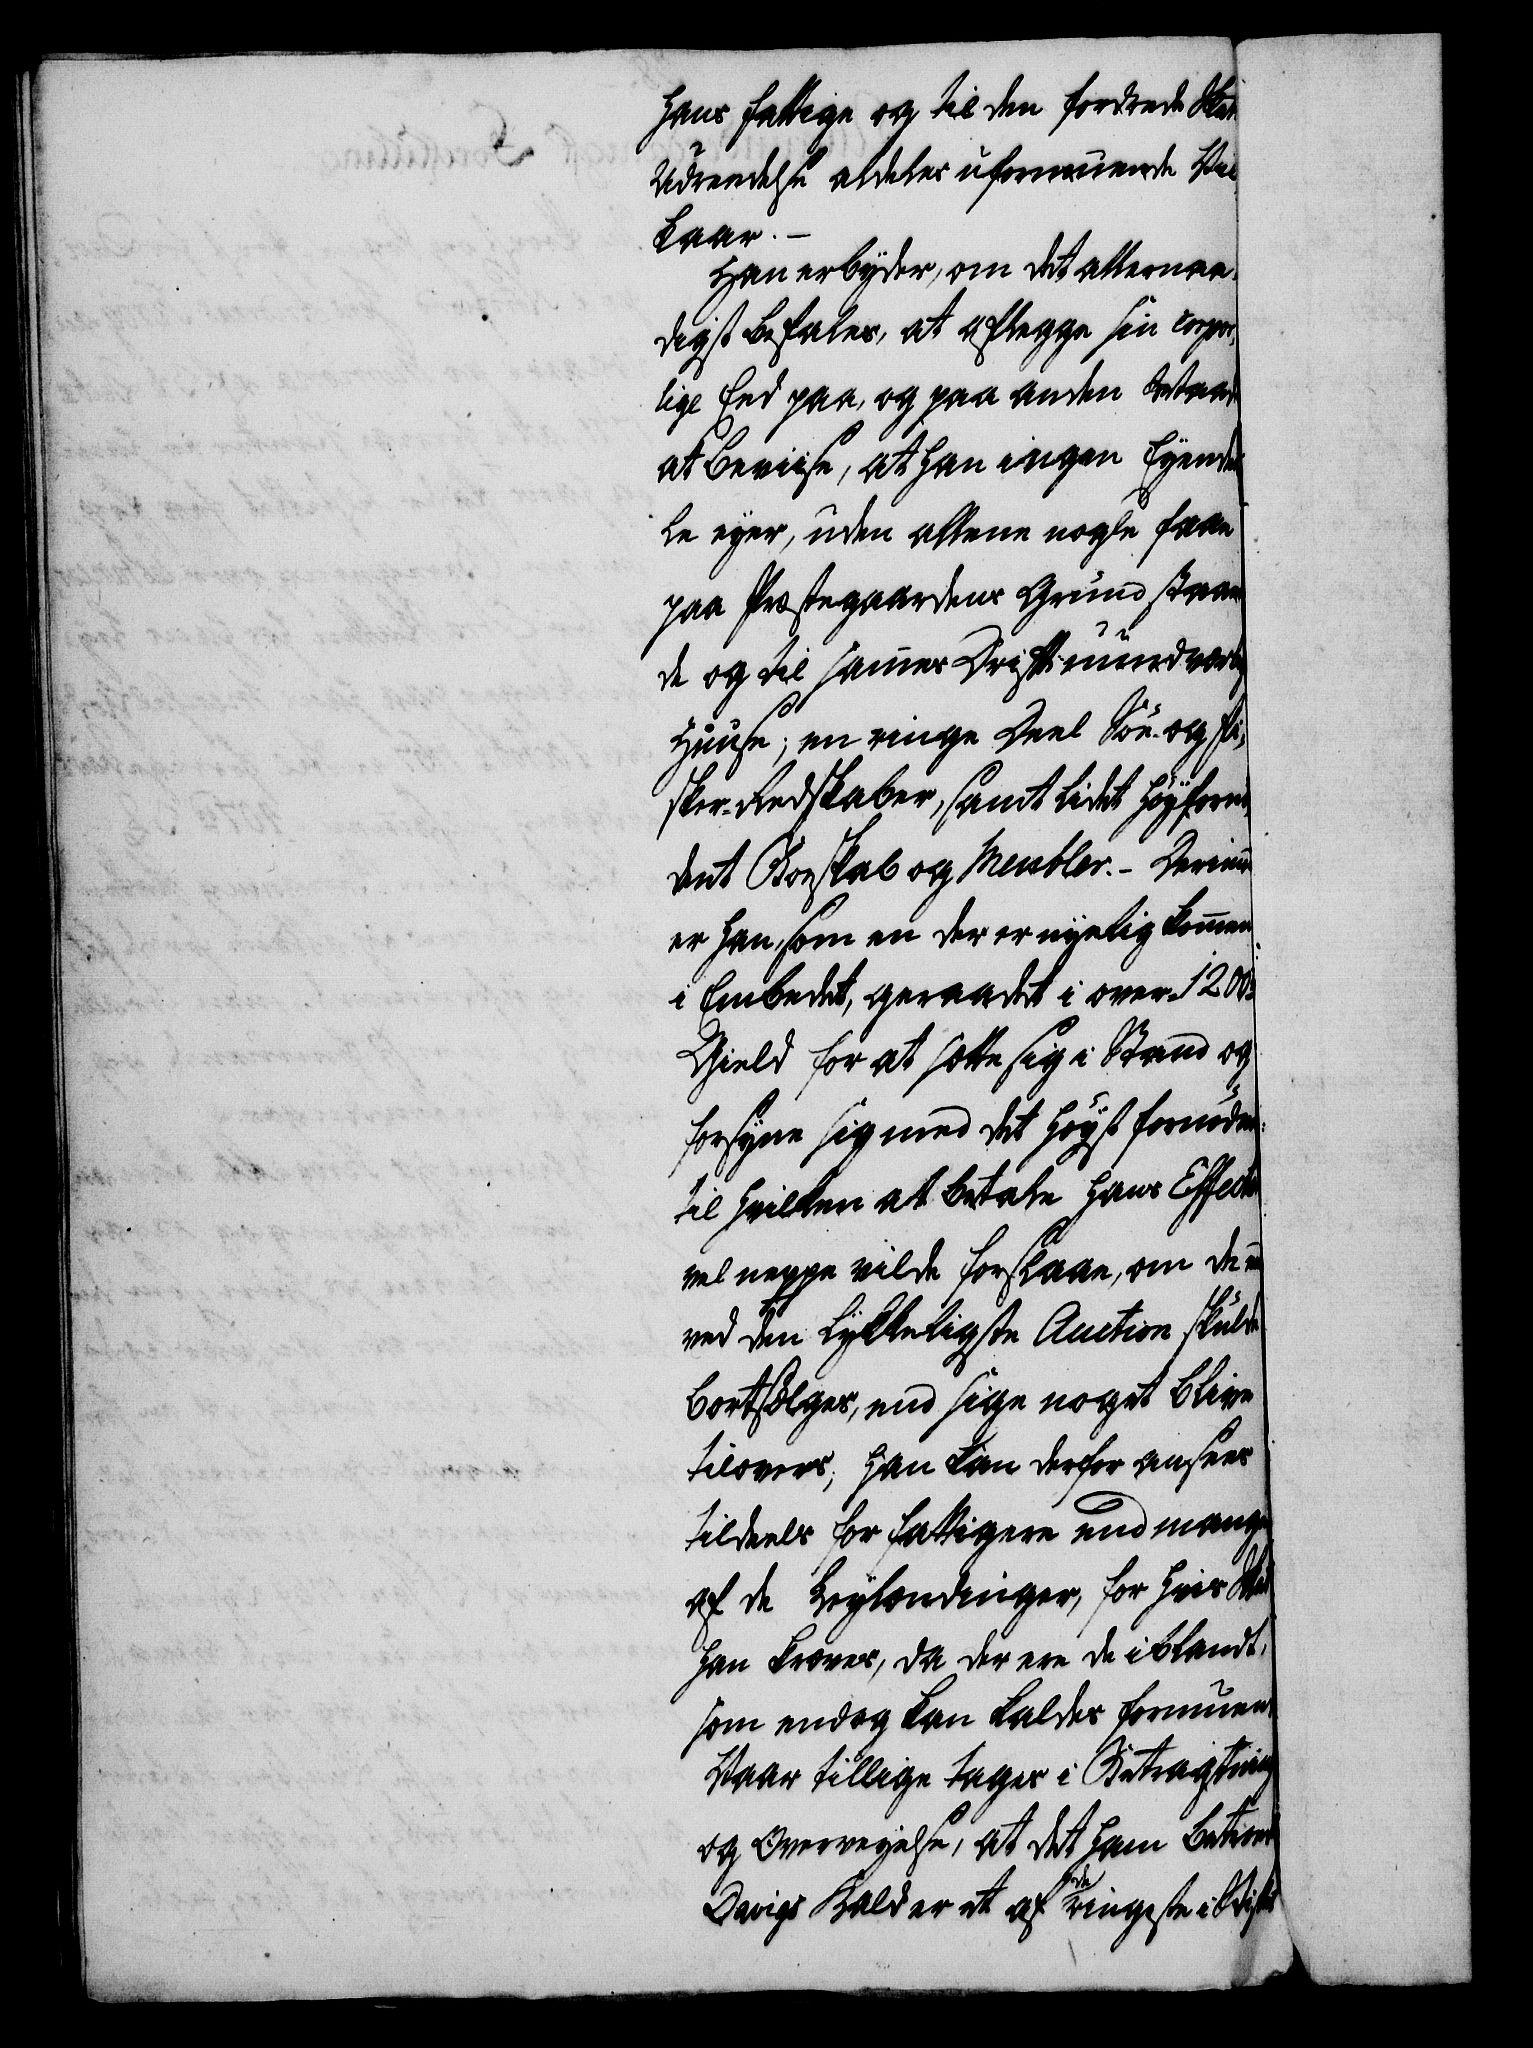 hans fattige og til den fordrede Skat
Udreedelse aldeles uformuende Vil
kaar. –
Han erbyder, om det allernaa-
digst befales, at aflegge sin corpor
lige Eed paa, og paa anden Maad
at beviise, at han ingen Eyende
le eyer, uden allene nogle faae
paa Præstegaardens Grund staaen
de og til sammes Drift uundværlig
Huuse; en ringe Deel Søe- og Fi-
sker-Redskaber, samt lidet høyforn
dent Boeskab og Meubler. – Derimod
er han, som en der er nyelig kommen
i Embedet, geraadet i over 1200
Gield for at sætte sig i Stand og
forsyne sig med det høyst fornøden
til hvilken at betale hans Effecter
vel neppe vilde forslaae, om de
ved den lykkeligste Auction skulde
bortsælges, end sige noget blive
tilovers; han kan derfor ansees
tildeels for fattigere end mange
af de Leylændinger, for hvis Skat
han kræves, da der ere de iblandt,
som endog kan kaldes formuen
Naar tillige tages i Betragtning
og Overveyelse, at det ham betroed
Davigs Kald er et af de ringeste i Stiftet